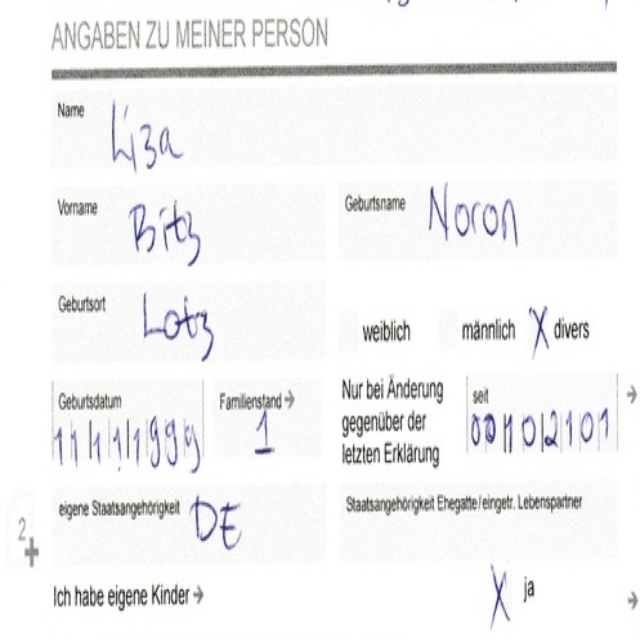 ANGABEN ZU MEINER PERSON
Name Liza
Vorname Bitz
Geburtsname Noron
Geburtsort Lotz
weiblich männlich X divers
Geburtsdatum 11111999
Familienstand → 1
Nur bei Änderung
gegenüber der
letzten Erklärung
seit 00102101
→
eigene Staatsangehörigkeit DE
Staatsangehörigkeit Ehegatte/eingetr. Lebenspartner
2
+
Ich habe eigene Kinder → X ja →